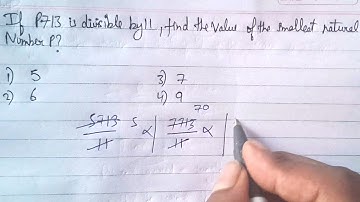 If P713 is divisible by 11, find the Value of the smallest natural
Number P?
1) 5 3) 7
2) 6 4) 9
70
5713 5 α 7713 α
11 11